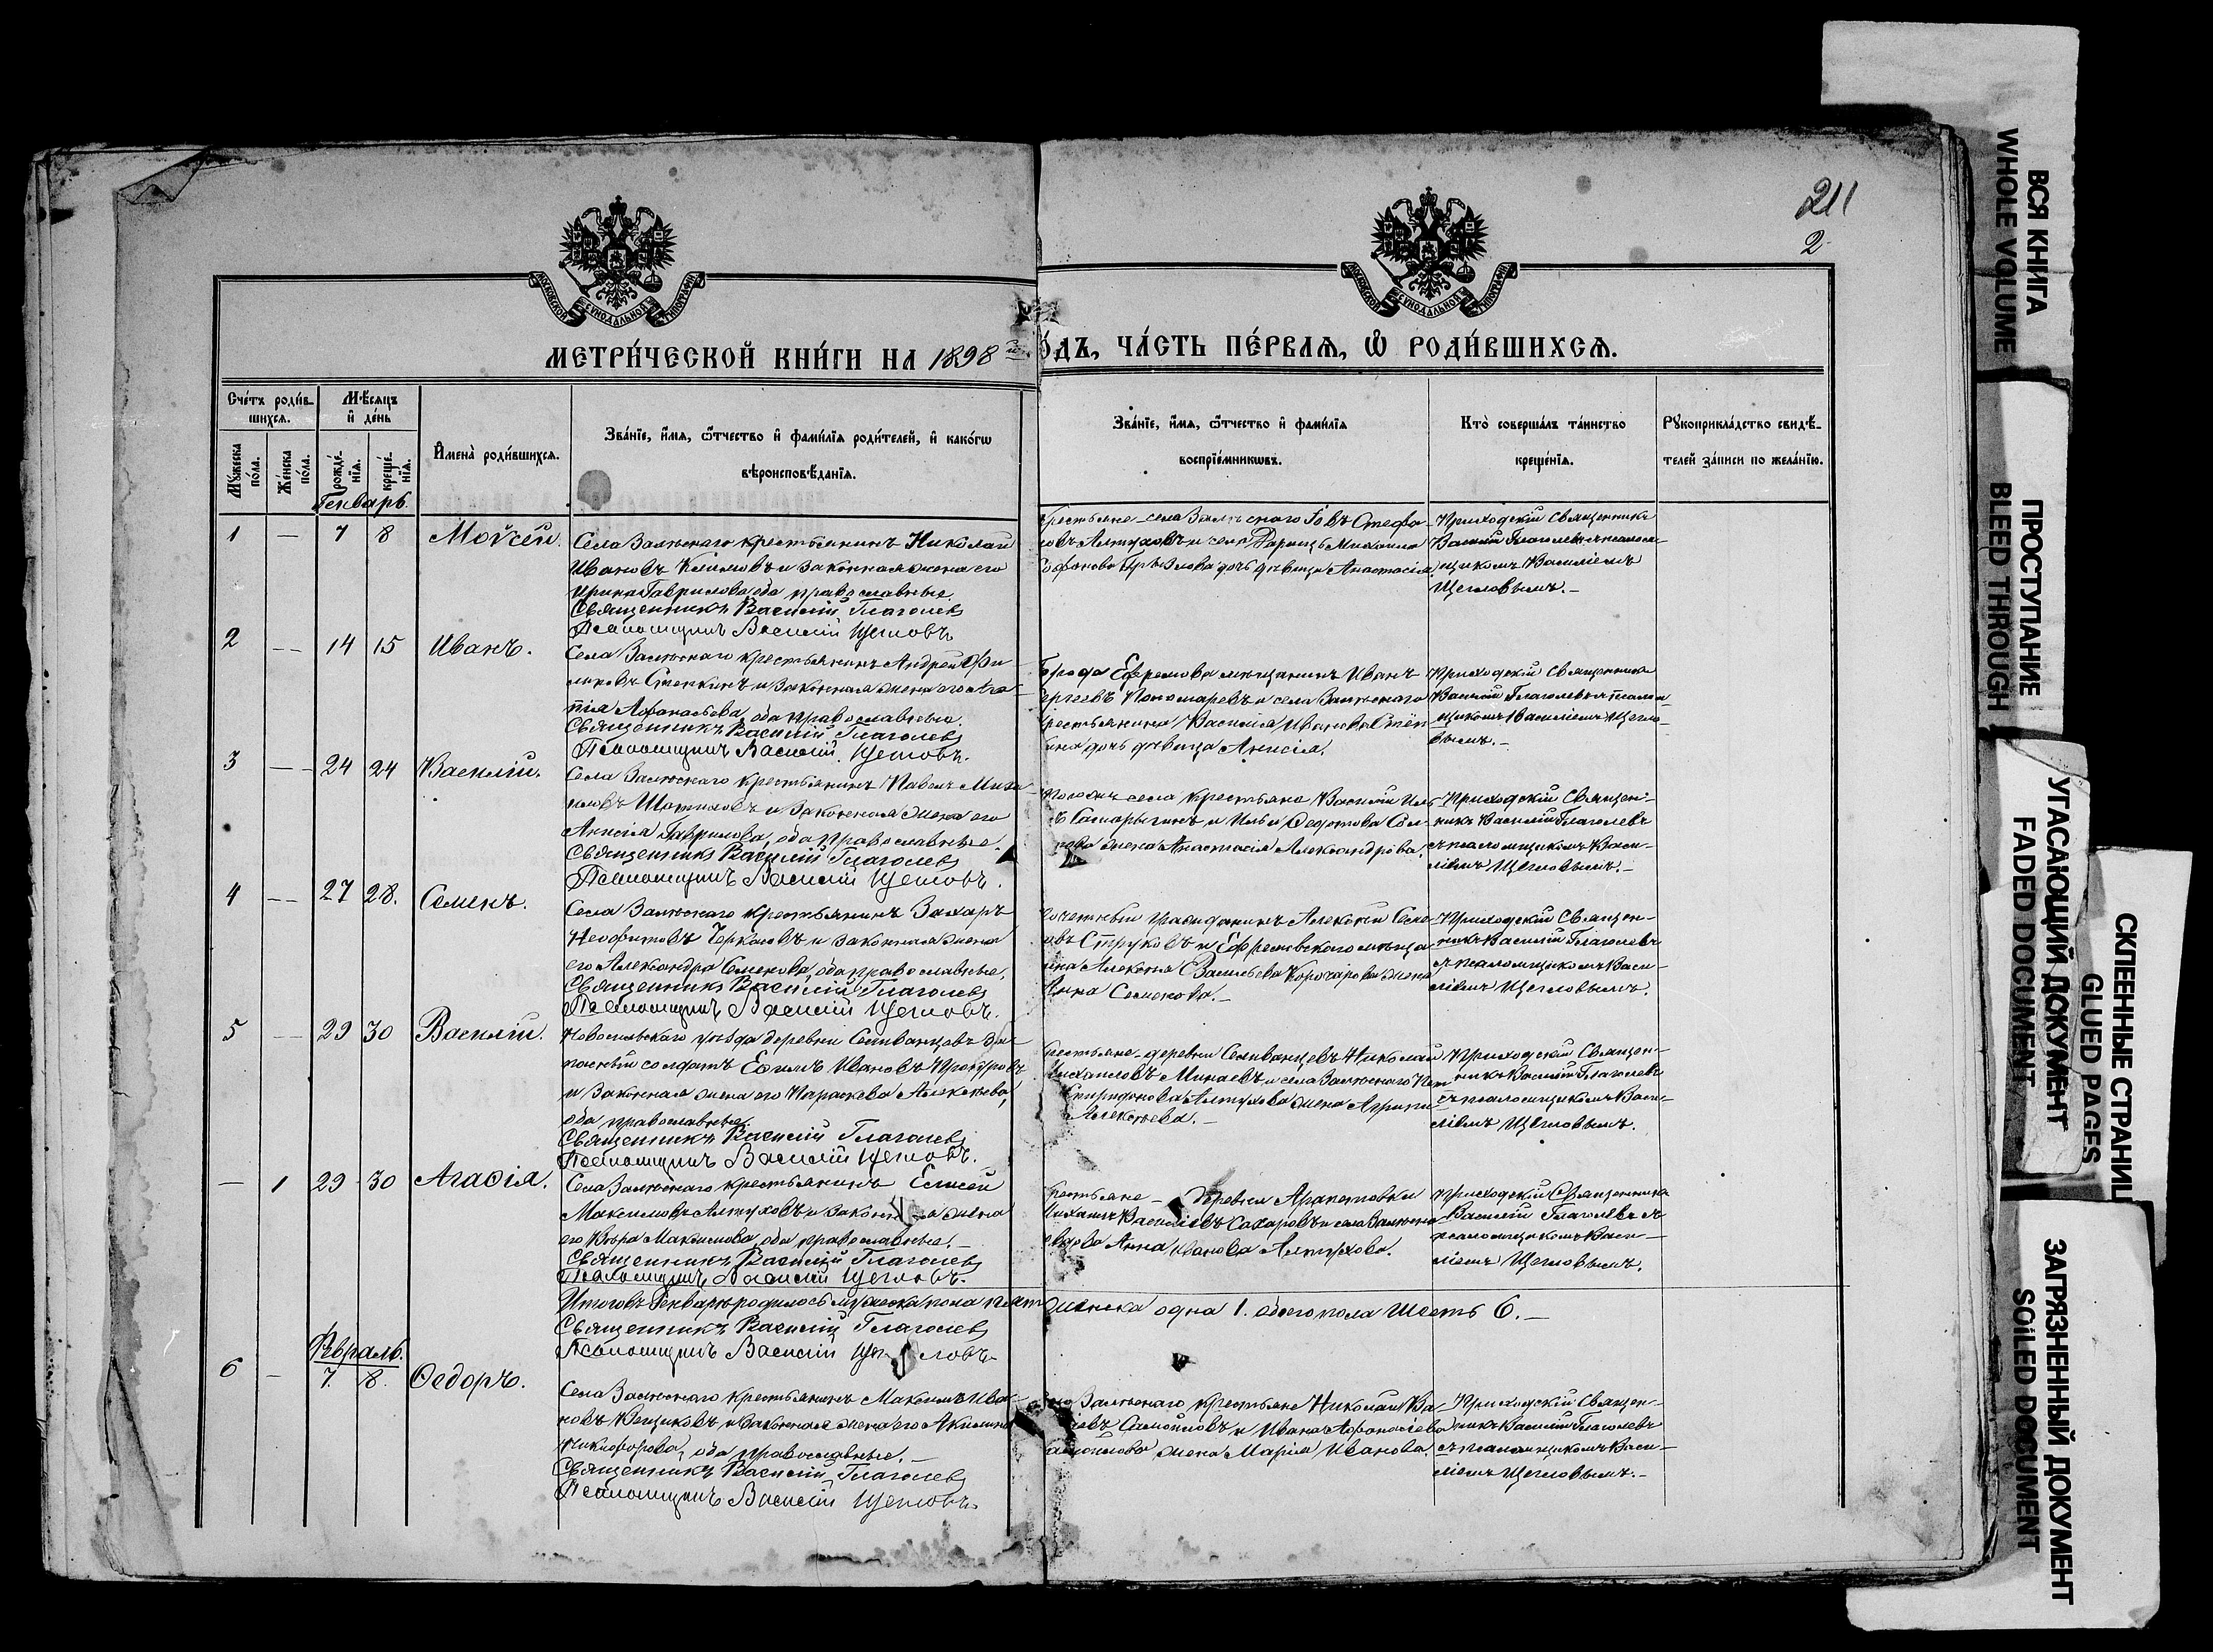 211
2
МОСКОВСКОЙ СѴНОДАЛЬНОЙ ТИПОГРАФІИ
МОСКОВСКОЙ СѴНОДАЛЬНОЙ ТИПОГРАФІИ
МЕТРИ́ЧЕСКОЙ КНИ́ГИ НА 1898 й О́ДЪ, ЧА́СТЬ ПЕ́РВАЯ, Ѡ РОДИ́ВШИХСЯ.
Сче́тъ роди́в-
шихся.
Мѣ́сяцъ
и де́нь
Мꙋ́жеска по́ла.
Же́нска по́ла.
рожде́нїя.
креще́нїя.
И҆мена̀ роди́вшихся.
Зва́нїе, и҆́мя, ѻ҆́тчество и҆ фами́лїя роди́телей, и҆ како́гѡ
вѣроисповѣ́данїя.
Зва́нїе, и҆́мя, ѻ҆́тчество и҆ фами́лїя
воспрїе́мникѡвъ.
Кто̀ соверша́лъ та́инство
креще́нїя.
Рꙋкоприкла́дство свидѣ́-
телей за́писи по жела́нїю.
Генварь.
1 — 7 8 Моѵсей.
Села Залѣскаго крестьянинъ Николай
Ивановъ Климовъ и законная жена его
Ирина Гаврилова, оба православные.
Священникъ Василій Глаголевъ
Псаломщикъ Василій Щегловъ
Крестьяне села Залѣскаго Іовъ Стефа-
новъ Алтуховъ и Михаила
дочь дѣвица Анастасія
Приходскій Священникъ
Василій Глаголевъ съ псалом-
щикомъ Василіемъ
Щегловымъ.—
2 — 14 15 Иванъ.
Села Залѣскаго крестьянинъ Андрей Фи-
липовъ Стёпкинъ и законная жена его Ага-
пія Афанасьева, оба православные.
Священникъ Василій Глаголевъ
Псаломщикъ Василій Щегловъ.
Города Ефремова мѣщанинъ Иванъ
Сергеевъ Пономаревъ и села Залѣскаго
крестьянина Василія Иванова Стёп-
кина дочь дѣвица Анисія.
Приходскій Священникъ
Василій Глаголевъ съ псалом-
щикомъ Василіемъ Щегло-
вымъ.—
3 — 24 24 Василій.
Села Залѣскаго крестьянинъ Павелъ Миха-
иловъ и законная жена его
Анисія Гаврилова, оба православные.
Священникъ Василій Глаголевъ
Псаломщикъ Василій Щегловъ.
села крестьяне Василій
и Ильи Федотова
жена Анастасія Александрова.
Приходскій Священ-
никъ Василій Глаголевъ
съ псаломщикомъ Васи-
ліемъ Щегловымъ.—
4 — 27 28. Семенъ.
Села Залѣскаго крестьянинъ Захаръ
Неофитовъ Черкасовъ и законная жена
его Александра Семенова, оба православные.
Священникъ Василій Глаголевъ
Псаломщикъ Василій Щегловъ.
Почетный гражданинъ Алексѣй Семе-
новъ Струковъ и Ефремовскаго мѣща-
нина Алексѣя Васильева жена
Анна Семенова.—
Приходскій Священ-
никъ Василій Глаголевъ
съ псаломщикомъ Васи-
ліемъ Щегловымъ.
5 — 29 30 Василій.
Новосильскаго уѣзда деревни Селиванцевъ за-
пасный солдатъ Ефимъ Ивановъ
и законная жена его Параскева Алексѣева,
оба православные.
Священникъ Василій Глаголевъ
Псаломщикъ Василій Щегловъ.
Крестьяне деревни Селиванцевъ Николай
Михаиловъ Минаевъ и села Залѣскаго
Спиридонова Алтухова жена
Алексѣева.—
Приходскій Священ-
никъ Василій Глаголевъ
съ псаломщикомъ Васи-
ліемъ Щегловымъ.
— 1 29 30 Агаѳія.
Села Залѣскаго крестьянинъ Елисей
Максимовъ Алтуховъ и законная жена
его Вѣра Максимова, оба православные.—
Священникъ Василій Глаголевъ
Псаломщикъ Василій Щегловъ.
Крестьяне — деревни
Михаилъ Василіевъ Сахаровъ и села Залѣскаго
вдова Анна Иванова Алтухова.
Приходскій Священникъ
Василій Глаголевъ съ
псаломщикомъ Васи-
ліемъ Щегловымъ.
Итого въ Генварѣ родилось мужеска пола пять женска одна 1. обоего пола шесть 6.—
Священникъ Василій Глаголевъ
Псаломщикъ Василій Щегловъ.
Февраль.
6 — 7. 8. Ѳедоръ.
Села Залѣскаго крестьянинъ Максимъ Ива-
новъ и законная жена его Акилина
Никифорова, оба православные.—
Священникъ Василій Глаголевъ
Псаломщикъ Василій Щегловъ.
Залѣскаго крестьяне Николай Ва-
Самойловъ и Ивана Афонасіева
Самойлова жена Марія Иванова.
Приходскій Священ-
никъ Василій Глаголевъ
съ псаломщикомъ Васи-
ліемъ Щегловымъ.—
ВСЯ КНИГА
WHOLE VOLUME
ПРОСТУПАНИЕ
BLEED THROUGH
УГАСАЮЩИЙ ДОКУМЕНТ
FADED DOCUMENT
СКЛЕЕННЫЕ СТРАНИЦ
GLUED PAGES
ЗАГРЯЗНЕННЫЙ ДОКУМЕНТ
SOILED DOCUMENT